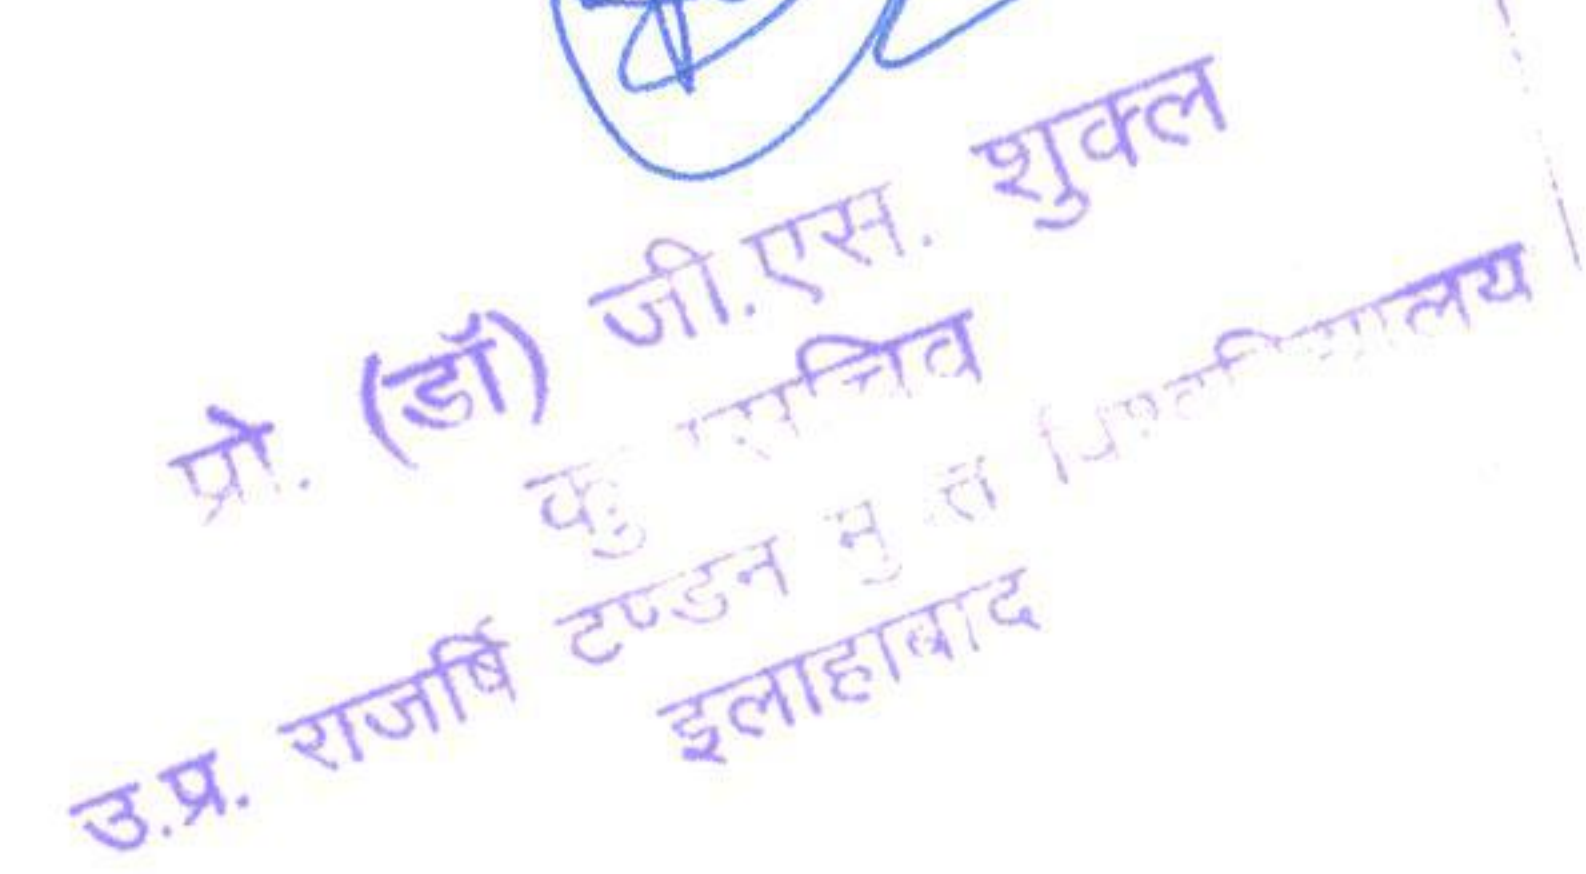 प्रो. (डॉ) जी.एस. शुक्ल
कुलसचिव
उ.प्र. राजर्षि टण्डन मुक्त विश्वविद्यालय
इलाहाबाद